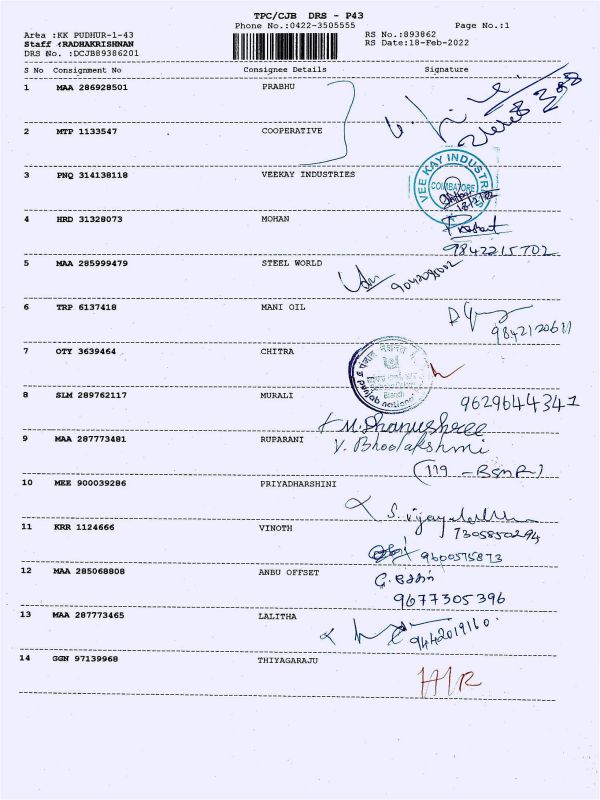 TPC/CJB DRS - P43
Phone No.:0422-3505555 Page No.:1
Area :KK PUDHUR-1-43 RS No.:893862
Staff :RADHAKRISHNAN RS Date:18-Feb-2022
DRS No. :DCJB89386201
S No Consignment No Consignee Details Signature
1 MAA 286928501 PRABHU
2 MTP 1133547 COOPERATIVE
3 PNQ 314138118 VEEKAY INDUSTRIES
VEE KAY INDUSTRIES
COIMBATORE
4 HRD 31328073 MOHAN
9842215702
5 MAA 285999479 STEEL WORLD
6 TRP 6137418 MANI OIL
7 OTY 3639464 CHITRA
8 SLM 289762117 MURALI 9629644341
M.Dhanushree
9 MAA 287773481 RUPARANI V. Bhoolakshmi
(119 - BSNR)
10 MEE 900039286 PRIYADHARSHINI
S. Vijayalakshmi
7305850294
11 KRR 1124666 VINOTH
9600575873
12 MAA 285068808 ANBU OFFSET
9677305396
13 MAA 287773465 LALITHA
9442019160
14 GGN 97139968 THIYAGARAJU